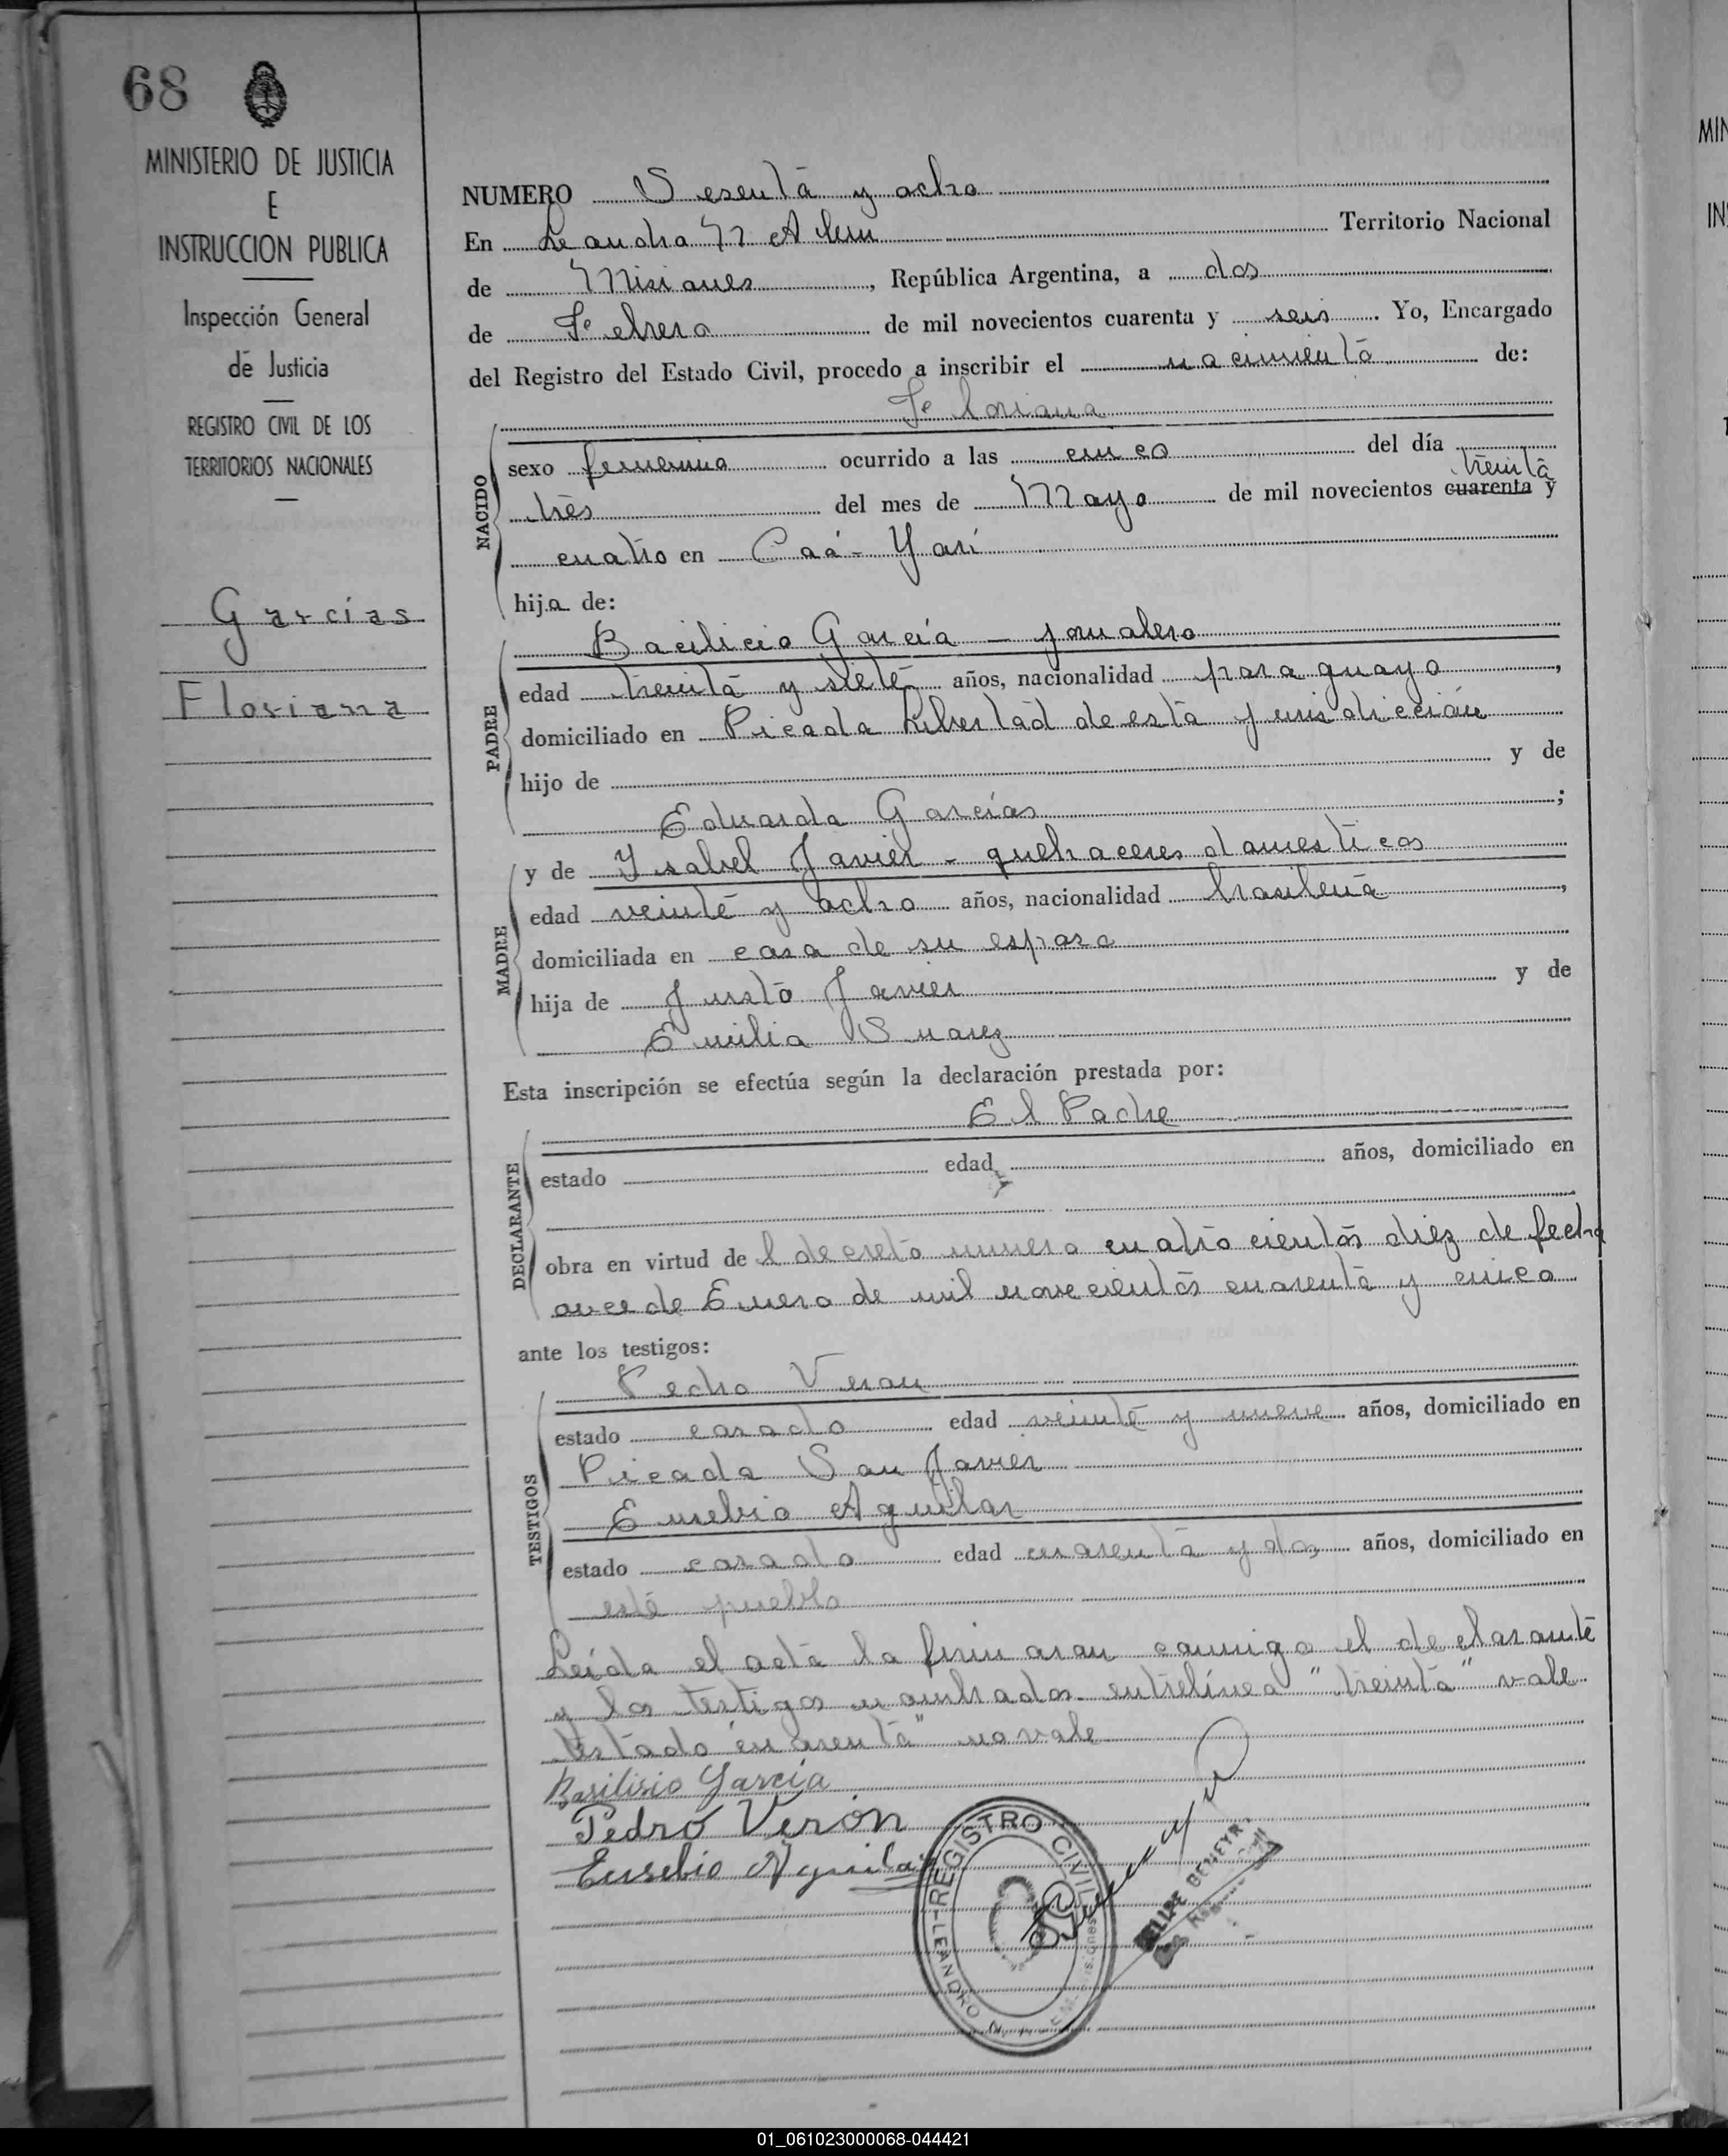 68
MINISTERIO DE JUSTICIA
E
INSTRUCCION PUBLICA
Inspección General
de Justicia
REGISTRO CIVIL DE LOS
TERRITORIOS NACIONALES
Garcías
Floriana
NUMERO Sesenta y ocho
En Leandro N Alem Territorio Nacional
de Misiones, República Argentina, a dos
de Febrero de mil novecientos cuarenta y seis. Yo, Encargado
del Registro del Estado Civil, procedo a inscribir el nacimiento de:
Floriana
NACIDO
sexo femenino ocurrido a las cinco del día
treinta
tres del mes de Mayo de mil novecientos cuarenta y
cuatro en Caá-Yarí
hija de:
PADRE
Bacilicio García - jornalero
edad treinta y siete años, nacionalidad paraguayo,
domiciliado en Picada Libertad de esta jurisdicción
hijo de y de
Eduarda Garcías;
MADRE
y de Ysabel Javier - quehaceres domesticos
edad veinte y ocho años, nacionalidad brasilena,
domiciliada en casa de su esposo
hija de Justo Javier y de
Emilia Suarez
Esta inscripción se efectúa según la declaración prestada por:
El Padre
DECLARANTE
estado edad años, domiciliado en
obra en virtud del decreto numero cuatro cientos diez de fecha
once de Enero de mil novecientos cuarenta y cinco
ante los testigos:
TESTIGOS
Pedro Veron
estado casado edad veinte y nueve años, domiciliado en
Picada San Javier
Eusebio Aguilar
estado casado edad cuarenta y dos años, domiciliado en
este pueblo
Leida el acta la firmaran conmigo el declarante
y los testigos nombrados. entrelínea "treinta" vale
testado "cuarenta" no vale
Basilisio García
Pedro Verón
Eusebio Aguilar
REGISTRO CIVIL
LEANDRO N.
01_061023000068-044421